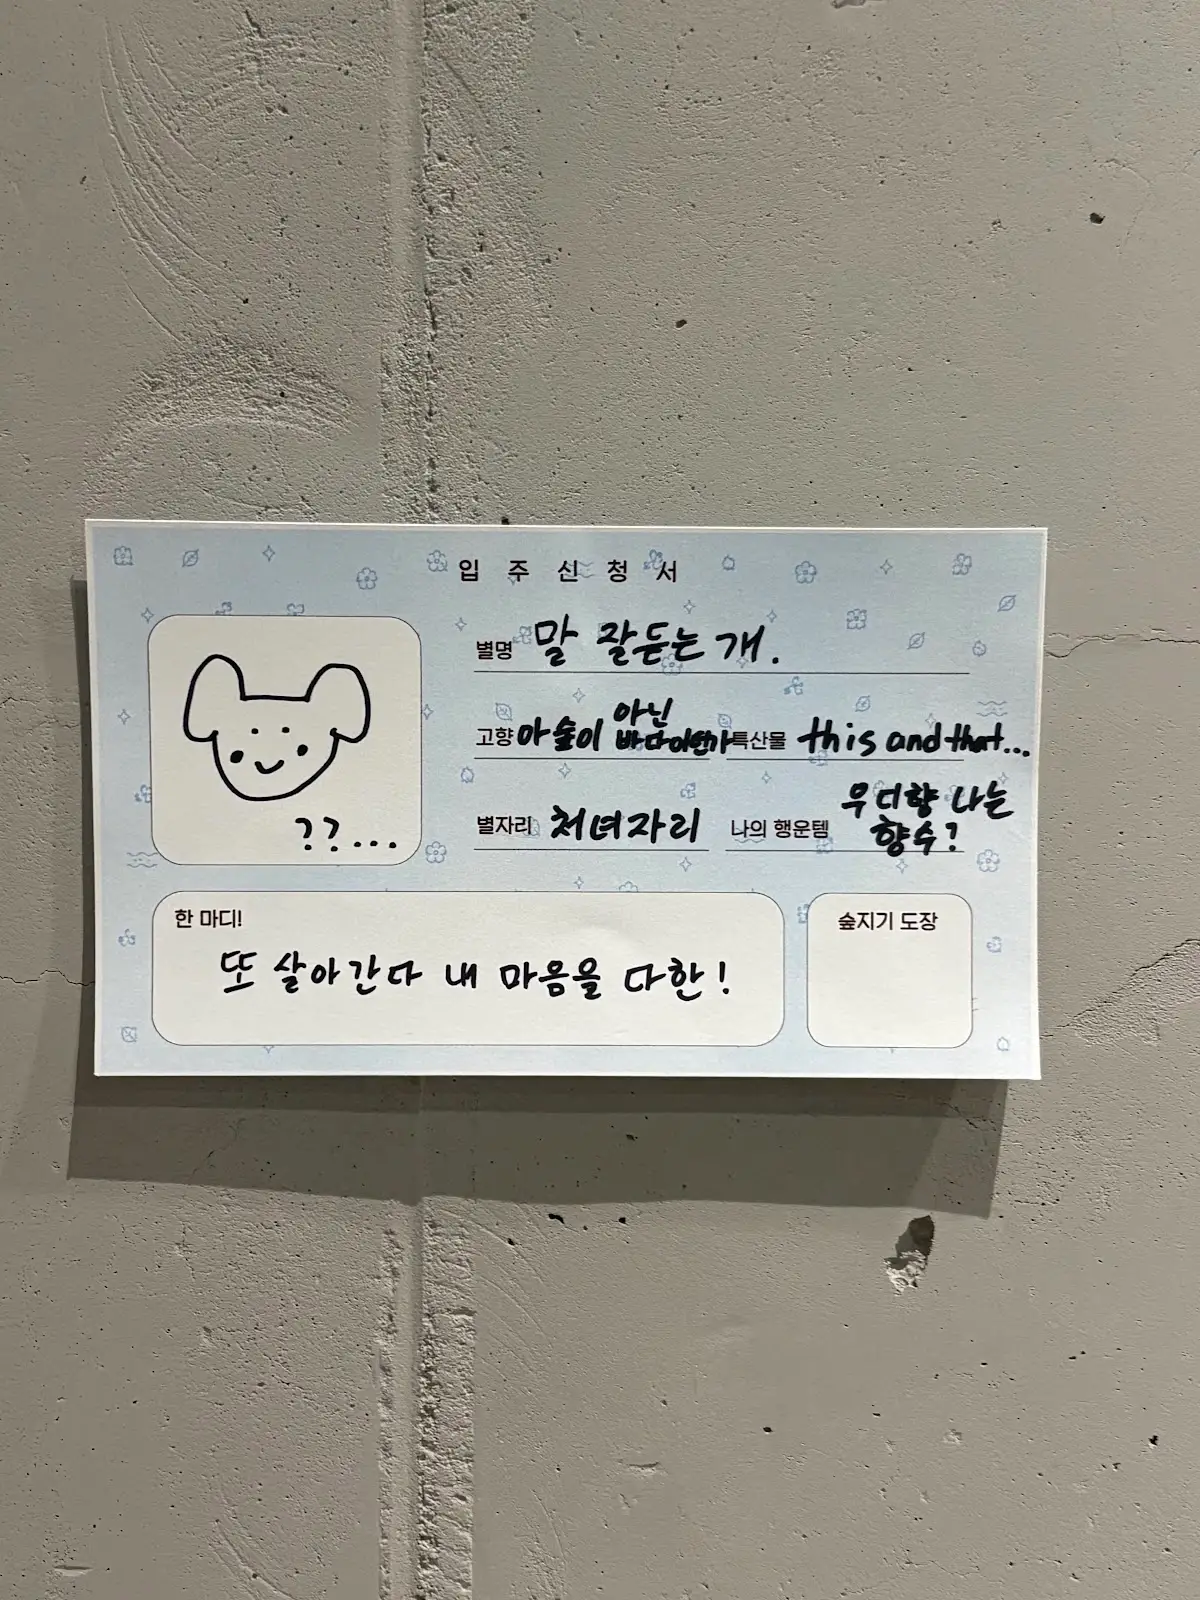 입 주 신 청 서
별명 말 잘듣는 개.
아닌
고향 아 숲이 바다이던가 특산물 this and that...
우디향 나는
별자리 처녀자리 나의 행운템 향수?
??...
한 마디!
숲지기 도장
또 살아간다 내 마음을 다한!